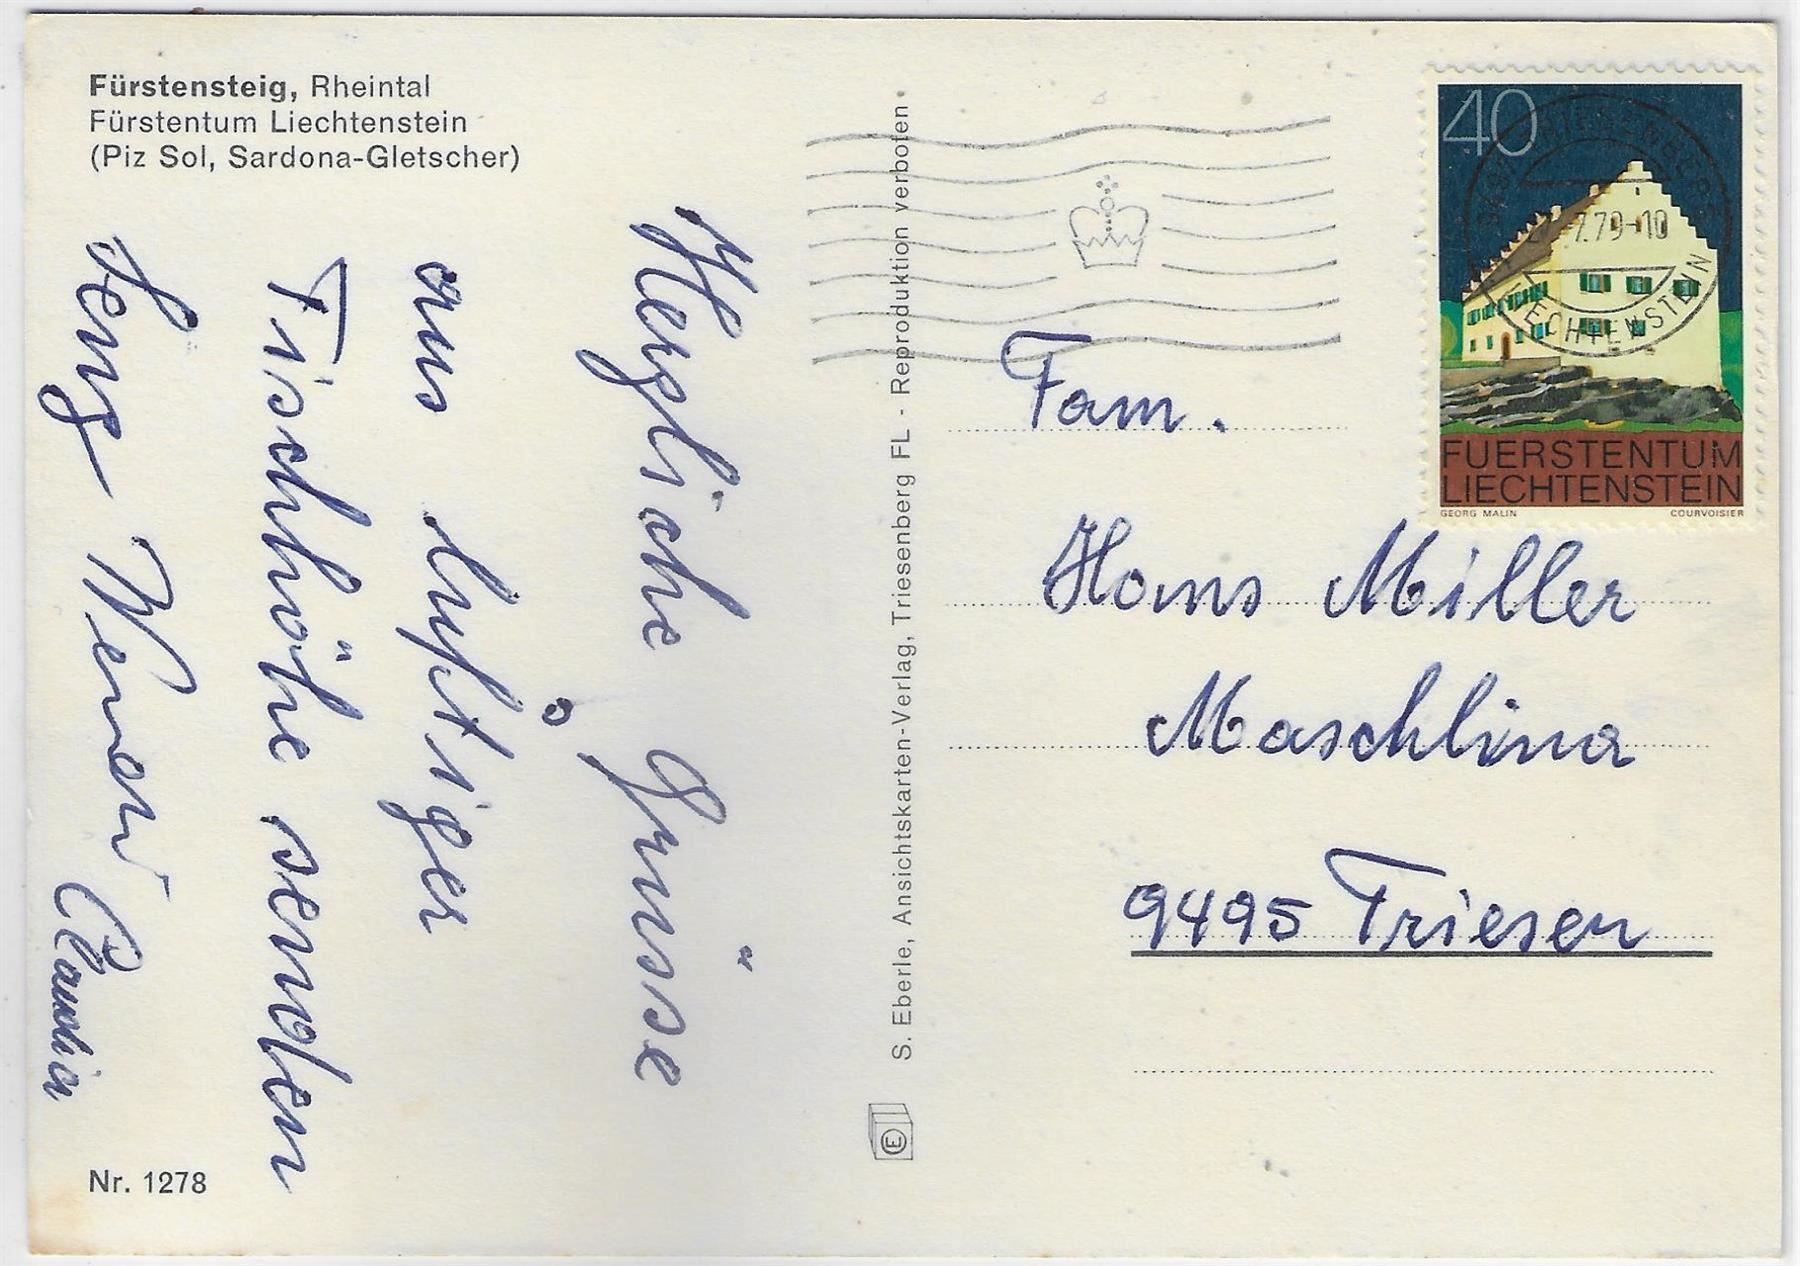 Fürstensteig, Rheintal
Fürstentum Liechtenstein
(Piz Sol, Sardona-Gletscher)
Herzliche Grüsse
aus luftiger
Tischhöhe senden
Claudia
Nr. 1278
S. Eberle, Ansichtskarten-Verlag, Triesenberg FL - Reproduktion verboten
E
40
9497 TRIESENBERG
.7.79-10
LIECHTENSTEIN
FUERSTENTUM
LIECHTENSTEIN
GEORG MALIN COURVOISIER
Fam.
Hans Miller
Maschlina
9495 Triesen